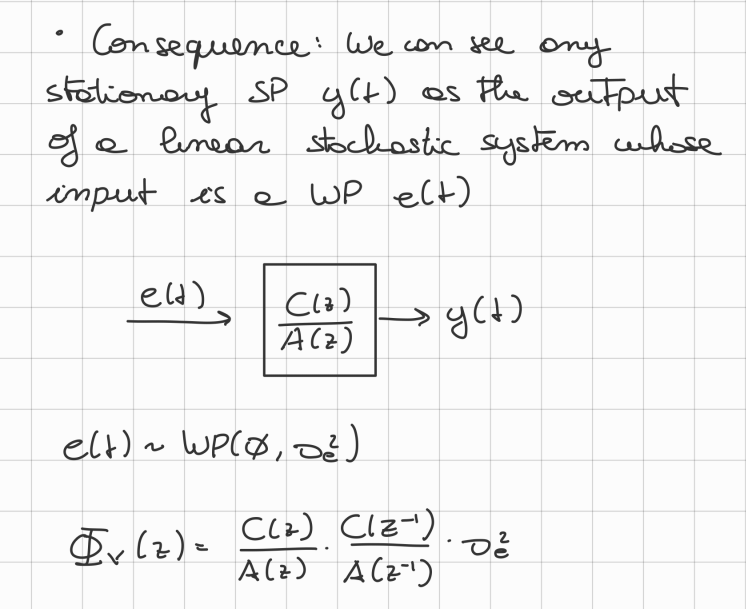 • Consequence: We can see any
stationary SP y(t) as the output
of a linear stochastic system whose
input is a WP e(t)
e(t) → C(z)/A(z) → y(t)
e(t) ~ WP(∅, σₑ²)
Φᵧ(z) = C(z)/A(z) · C(z⁻¹)/A(z⁻¹) · σₑ²